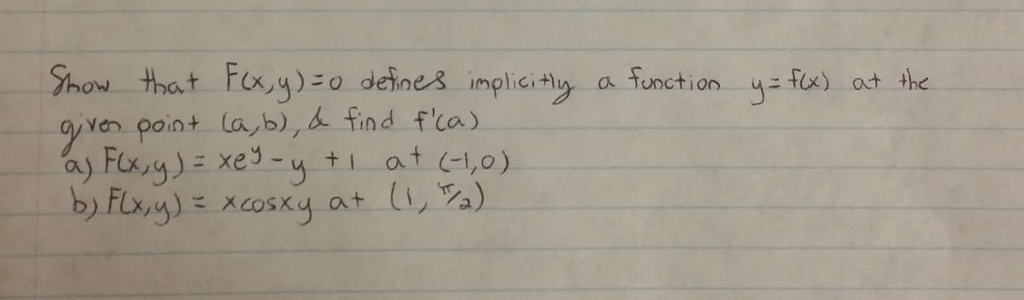 Show that F(x,y)=0 defines implicitly a function y=f(x) at the
given point (a,b), & find f'(a)
a) F(x,y) = xe^y - y + 1 at (-1,0)
b) F(x,y) = xcosxy at (1, π/2)